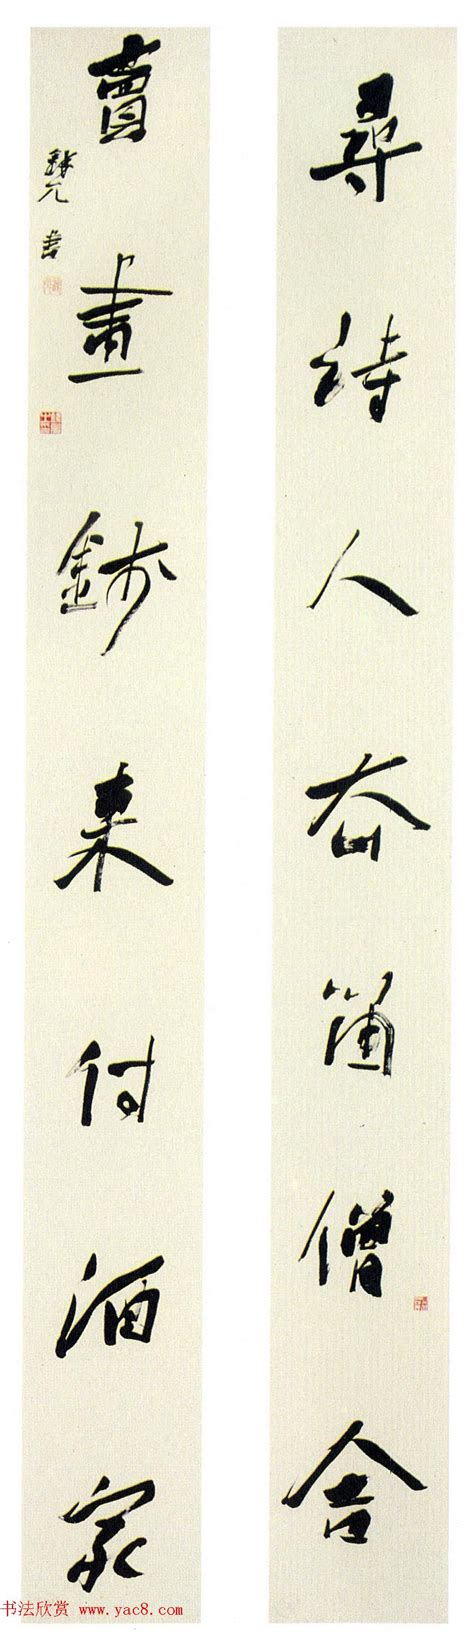 尋詩人去留僧舍
賣畫錢來付酒家
書
书法欣赏 www.yac8.com